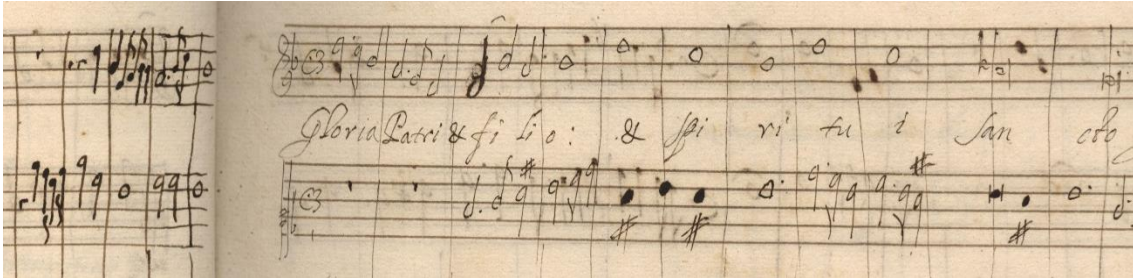 Gloria Patri & fi li o: & Spi ri tu i San cto